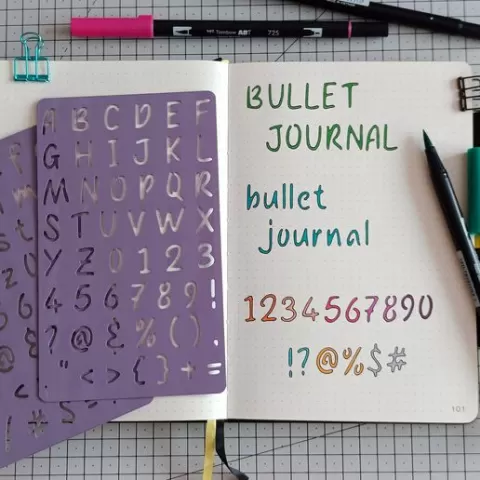 Tombow ABT 725
A B C D E F
G H I J K L
M N O P Q R
S T U V W X
Y Z 0 1 2 3
4 5 6 7 8 9 !
? @ & % ( ) .
, " < > { } + =
BULLET
JOURNAL
bullet
journal
1234567890
!?@%$#
101